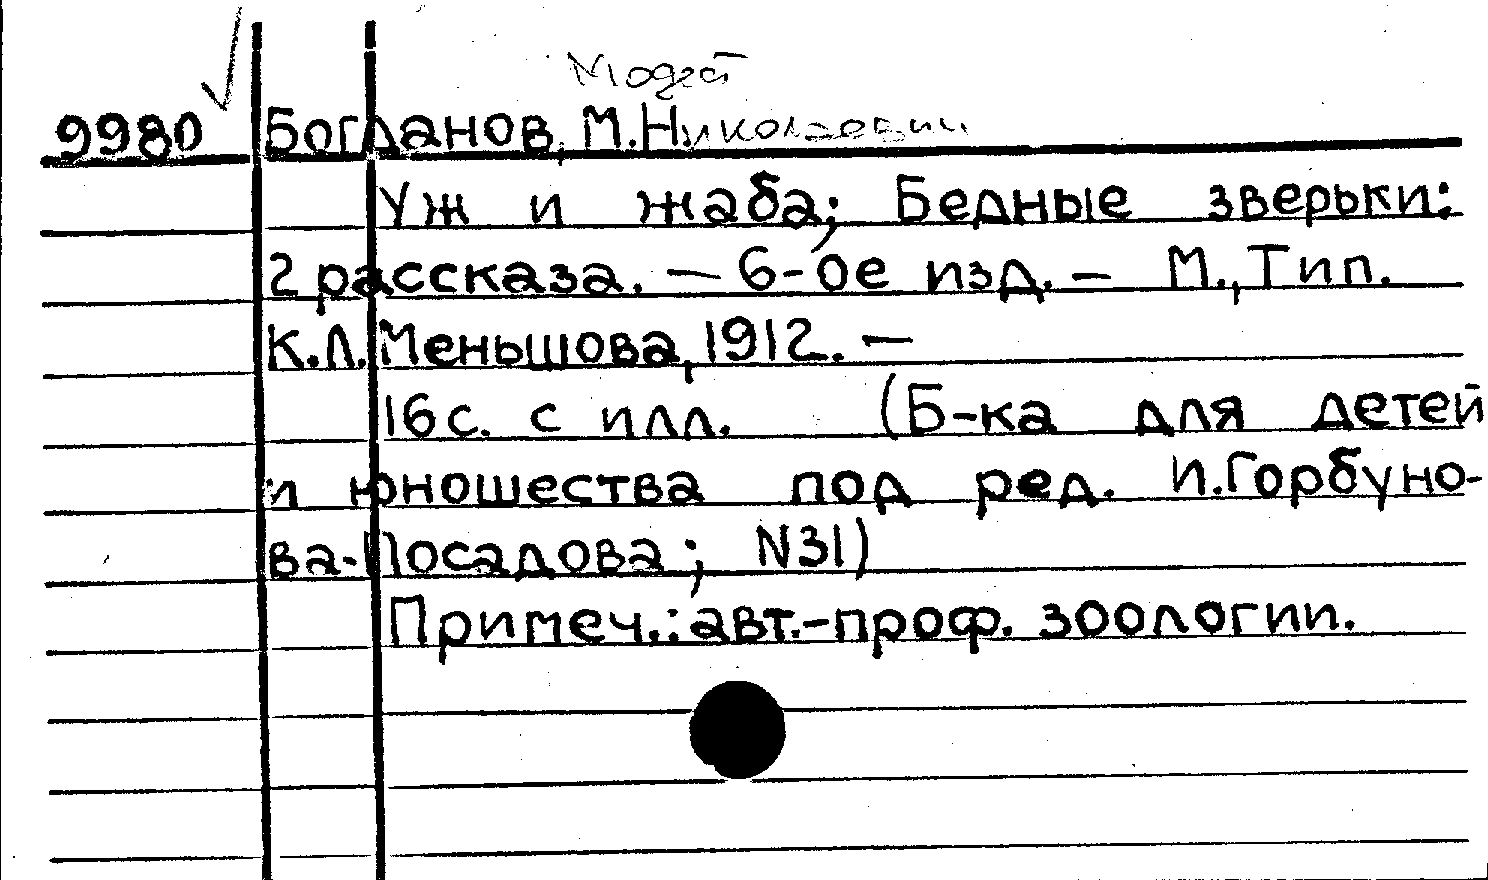 Модест
9980 Богданов, М.Николаевич
Уж и жаба; Бедные зверьки:
2 рассказа. — 6-ое изд. — М., Тип.
К.Л.Меньшова, 1912. —
16с. с илл. (Б-ка для детей
и юношества под ред. И.Горбуно-
ва-Посадова; N31)
Примеч.: авт.-проф. зоологии.